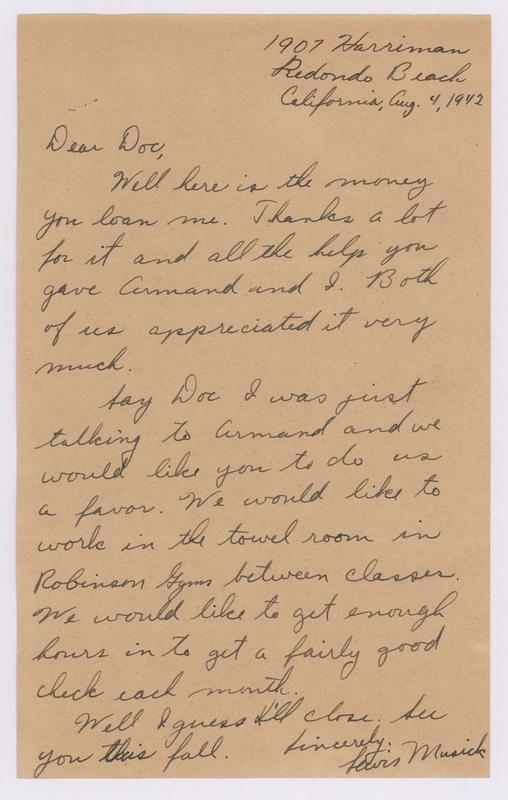 1907 Harriman
Redondo Beach
California, Aug. 4, 1942
Dear Doc,
Well here is the money
you loan me. Thanks a lot
for it and all the help you
gave Armand and I. Both
of us appreciated it very
much.
Say Doc I was just
talking to Armand and we
would like you to do us
a favor. We would like to
work in the towel room in
Robinson Gym between classes.
We would like to get enough
hours in to get a fairly good
check each month.
Well I guess I'll close. See
you this fall. Sincerely:
Lewis Musick